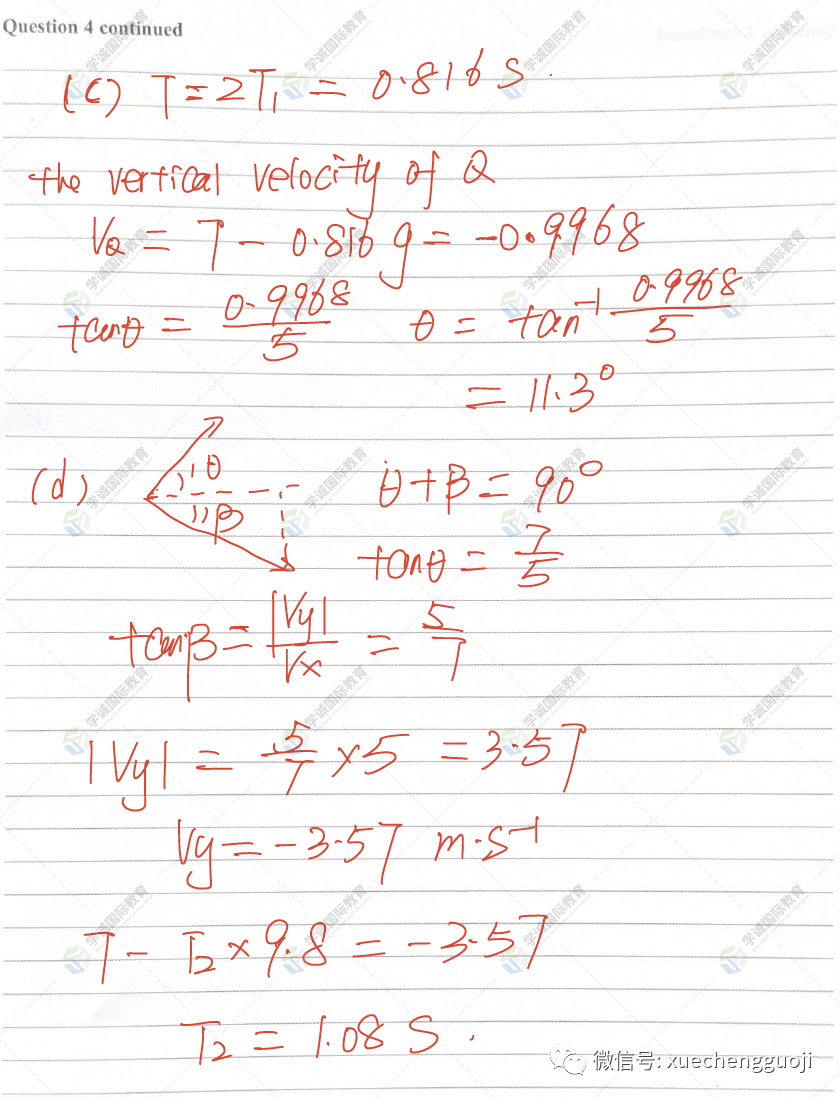 Question 4 continued
(c) T = 2T₁ = 0.816 s.
the vertical velocity of Q
V_Q = 7 - 0.816 g = -0.9968
tanθ = 0.9968/5 θ = tan⁻¹ 0.9968/5
= 11.3°
(d) θ β θ + β = 90°
tanθ = 7/5
tanβ = |Vy|/Vx = 5/7
|Vy| = 5/7 × 5 = 3.57
Vy = -3.57 m·s⁻¹
7 - T₂ × 9.8 = -3.57
T₂ = 1.08 s.
微信号: xuechengguoji
学诚国际教育